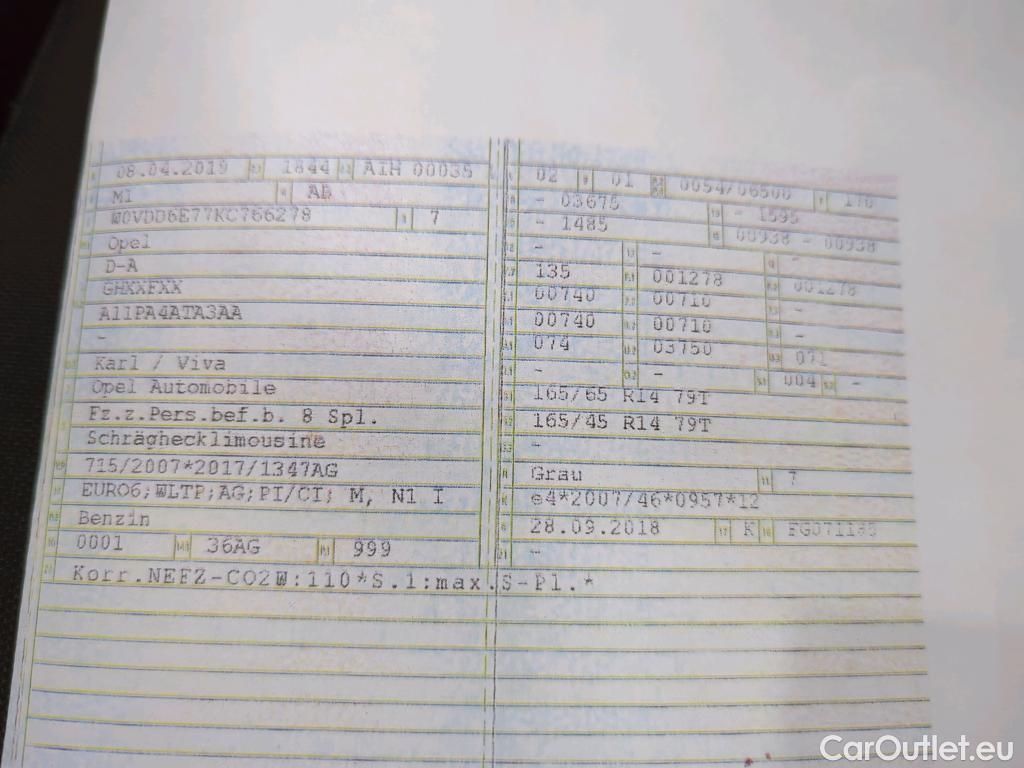 08.04.2019 1844 AIH 00035
M1 AB
W0VDD6E77KC766278 7
Opel
D-A
GHXXFXX
A11PA4ATA3AA
-
Karl / Viva
Opel Automobile
Fz.z.Pers.bef.b. 8 Spl.
Schräghecklimousine
715/2007*2017/1347AG
EURO6;WLTP;AG;PI/CI; M, N1 I
Benzin
0001 36AG 999
Korr.NEFZ-CO2W:110*S.1:max.S-Pl.*
02 01 0054/06500
- 03675 - 1595
- 1485 00938 - 00938
- - -
135 001278 001278
00740 00710 -
00740 00710 -
074 03750 071
- - 004 -
165/65 R14 79T
165/45 R14 79T
-
Grau 7
e4*2007/46*0957*12
28.09.2018 17 K 16 FG071185
-
CarOutlet.eu